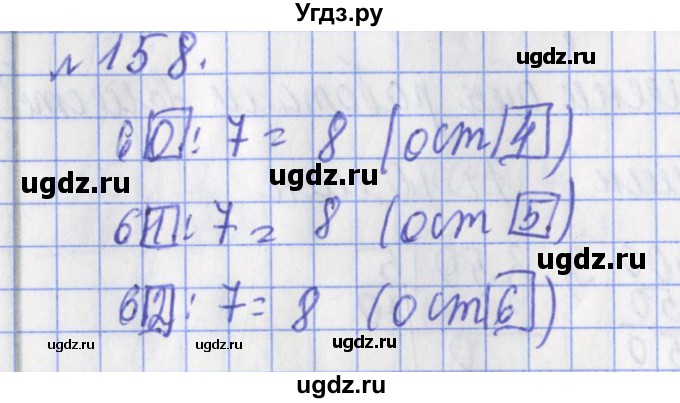 Угдз.ру
№ 158.
ugdz.ru
ugdz.ru
60 : 7 = 8 (ост 4)
ugdz.ru
ugdz.ru
61 : 7 = 8 (ост 5)
ugdz.ru
62 : 7 = 8 (ост 6)
ugdz.ru
ugdz.ru
ugdz.ru
ugdz.ru